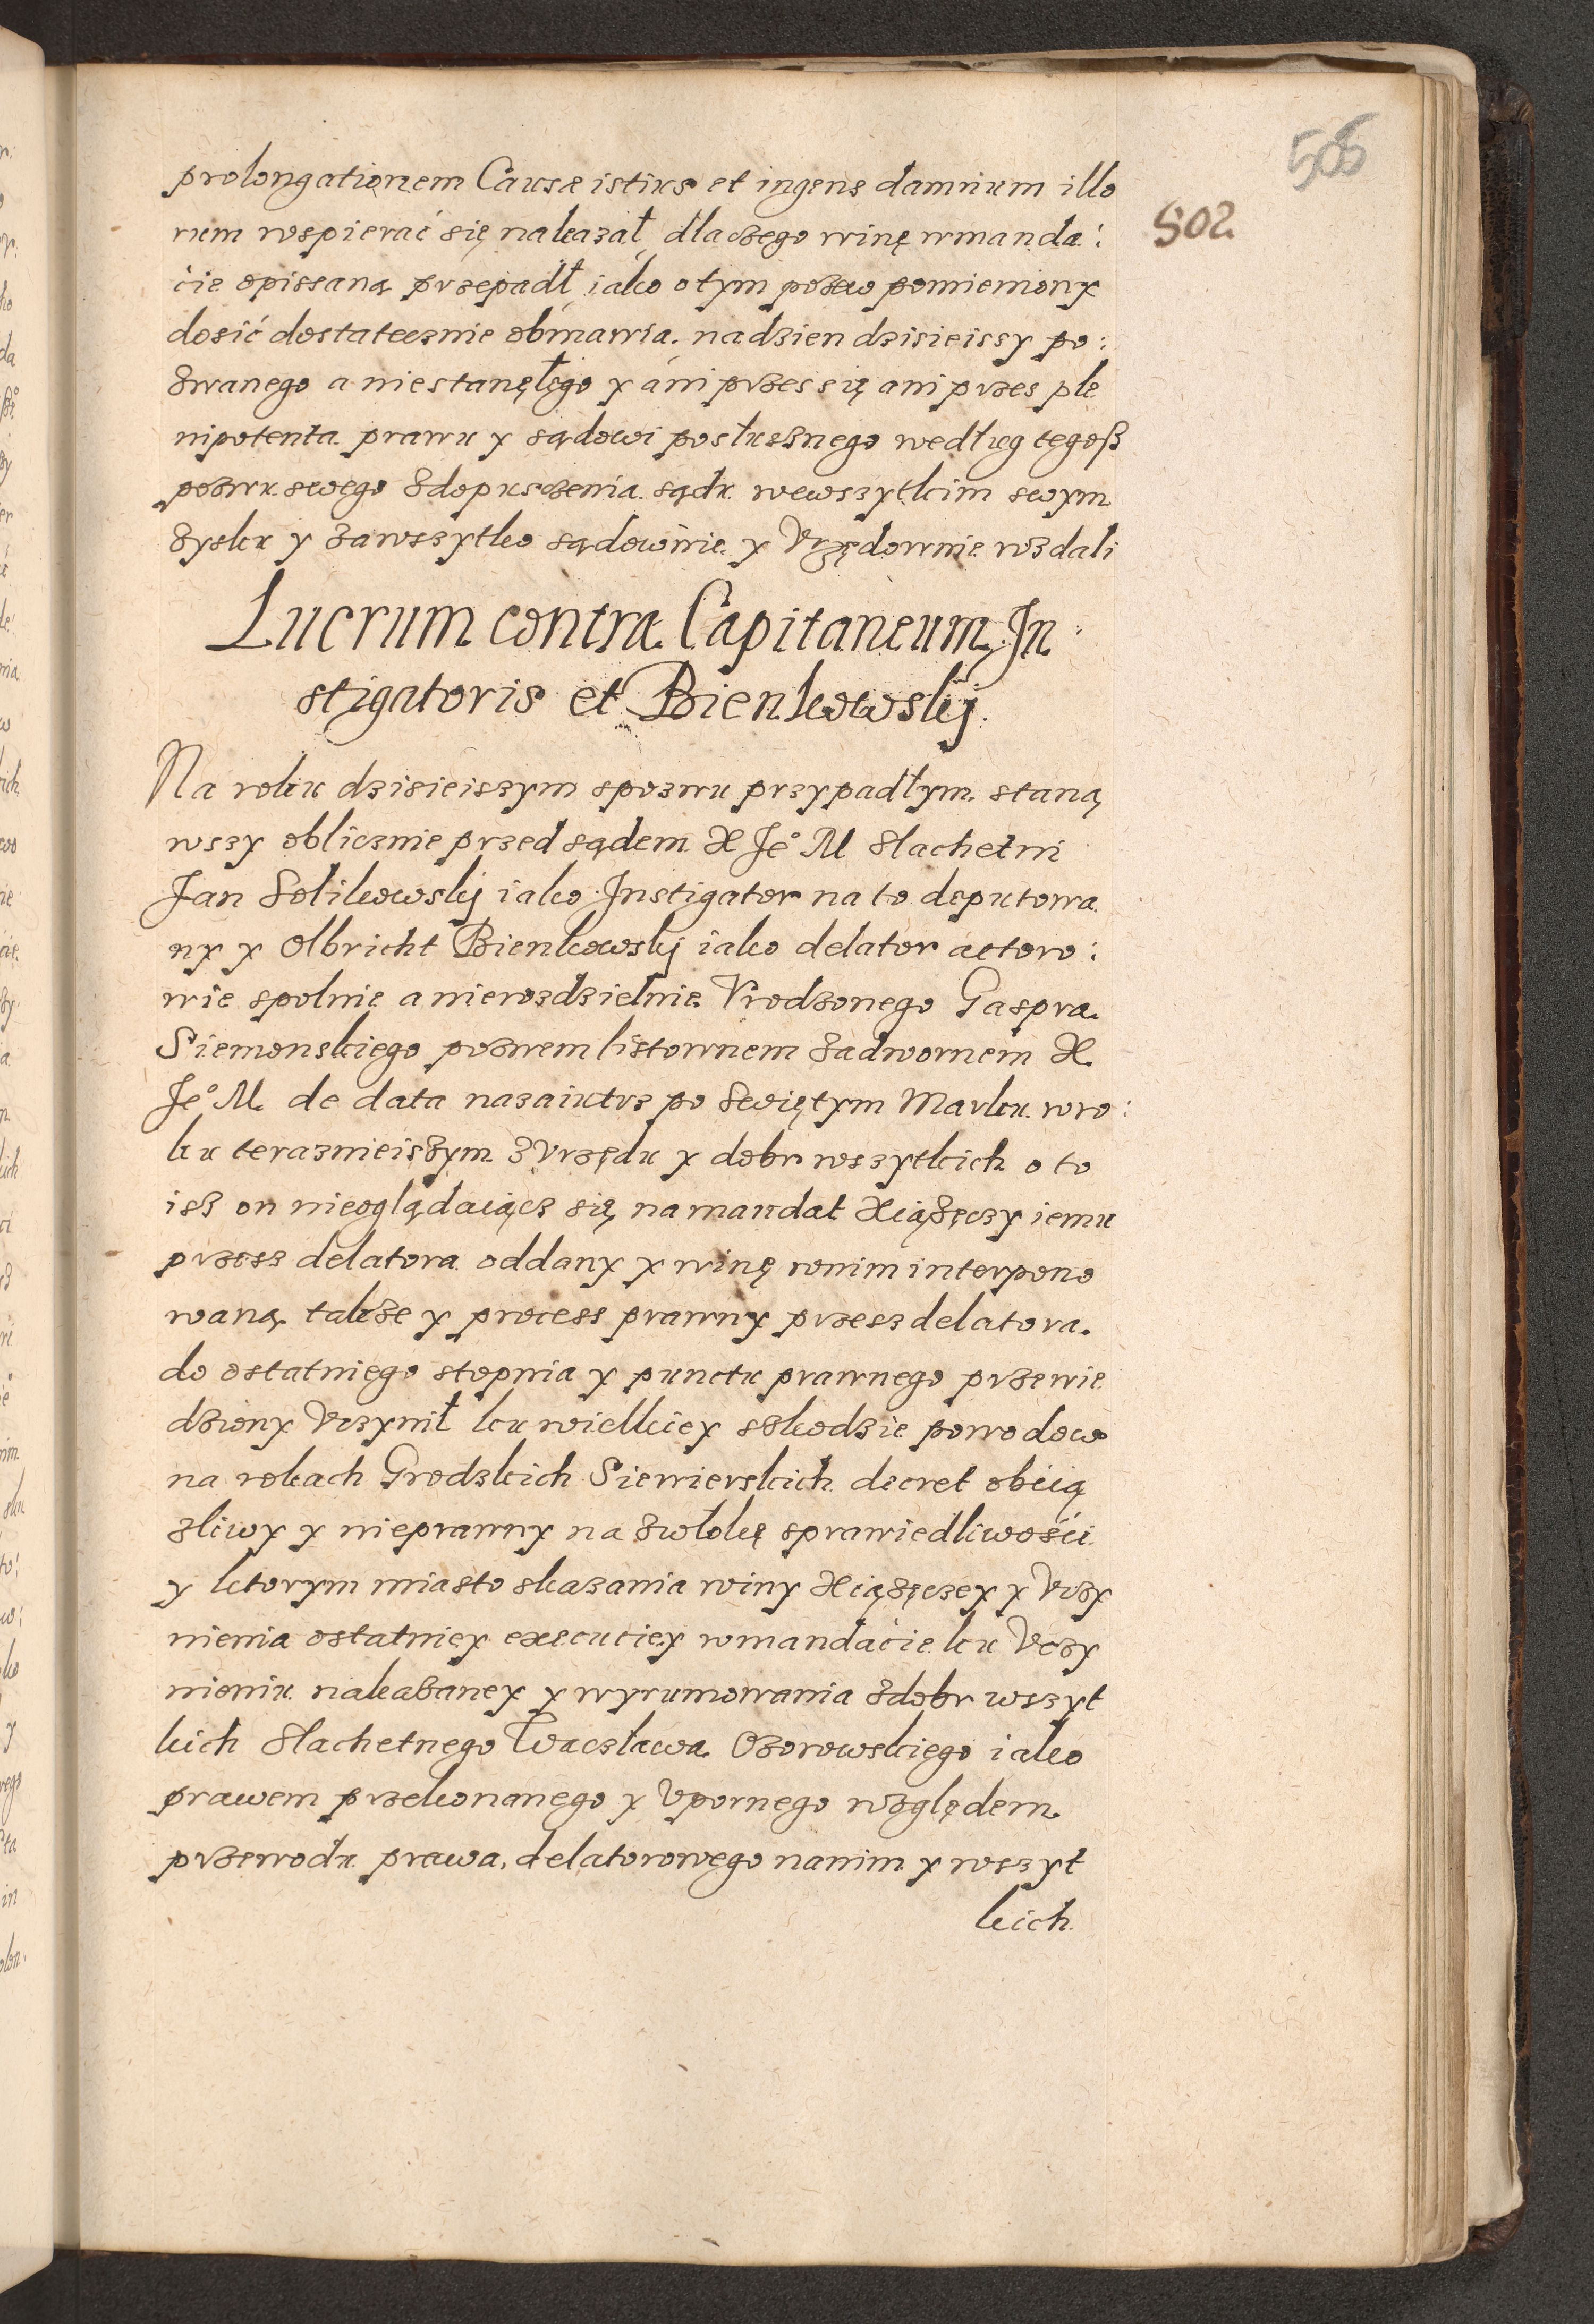 506
502
prolongationem Causæ istius et ingens damnum illo
rum wspierać się nakazał, dlaczego winę wmanda:
cie opissaną przepadł, iako o tym pozew pomieniony
dosić dostatecznie obmawia. na dzien dzisieissy po:
zwanego a niestanęłego y ani przes się ani przes ple
nipotenta prawu y sądowi posłusznego według tegoß
pozwu swego zdopusczenia sądu wewszytkim swym
zysku y zawszytko sądownie y Vrzędownie wzdali
Lucrum contra Capitaneum In:
stigatoris et Bienkowskij.
Na roku dzisieiszym spozwu przypadłym staną
wszy oblicznie przed sądem X Je° M Slachetni
Jan Solikowskij iako Instigator na to deputowa
ny y Olbricht Bienkowskij iako delator actoro:
wie spolnie a nierozdzielnie Vrodzonego Gaspra
Siemonskiego pozwem listownem zadwornem X.
Je° M. de data nazaiutrz po Swiętym Marku wro:
ku teraznieiszym zVrzędu y dobr wszytkich o to
isz on nieoglądaiącz się na mandat Xiążęczy iemu
przesz delatora oddany y winę wnim interpono
waną takze y process prawny przesz delatora
do ostatniego stopnia y punctu prawnego przewie
dziony Vczynił ku wielkiey szkodzie powodow
na rokach Grodzkich Siewierskich decret obcią
zliwy y nieprawny na zwłokę sprawiedliwości
y ktorym miasto skazania winy Xiążęczey y Vczy
nienia ostatniey executiey wmandacie ku Vczy
nioniu nakazaney y wyrumowania zdobr wszyt
kich Slachetnego Wacława Ozorowskiego iako
prawem przekonanego y Vpornego względem
przewodu prawa delatorowego nanim y wszyt
kich